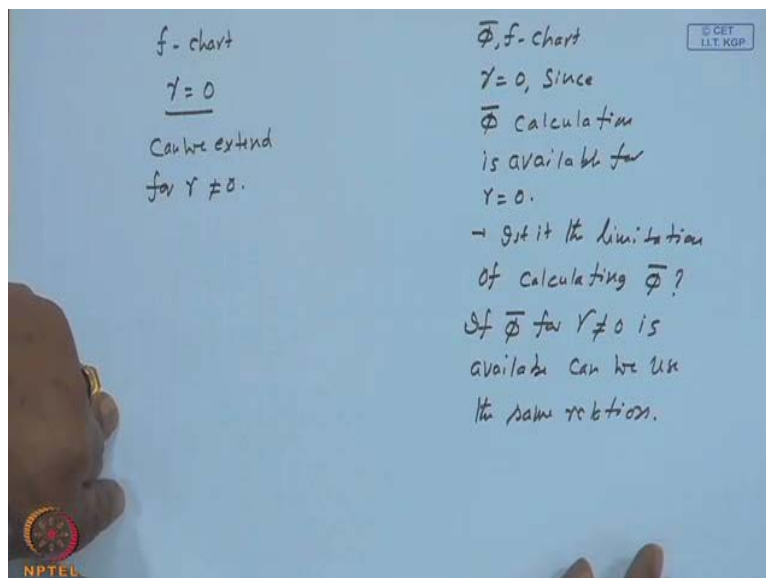 f - chart
γ = 0
Can we extend
for γ ≠ 0.
Φ̅, f - Chart
γ = 0, Since
Φ̅ Calculation
is available for
γ = 0.
→ Is it the limitation
of calculating Φ̅ ?
If Φ̅ for γ ≠ 0 is
available can we use
the same relation.
© CET
I.I.T. KGP
NPTEL